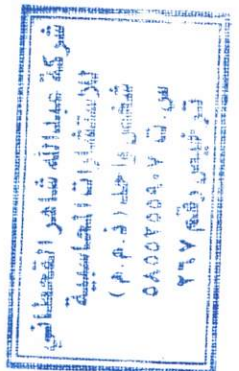 شركة عبدالله شاهر القحطاني
للاستشارات المحاسبية
شخص واحد (ذ.م.م)
س.ت ٥٨٥٥٣٥٥٩٠٧
ترخيص رقم ٧٦٢